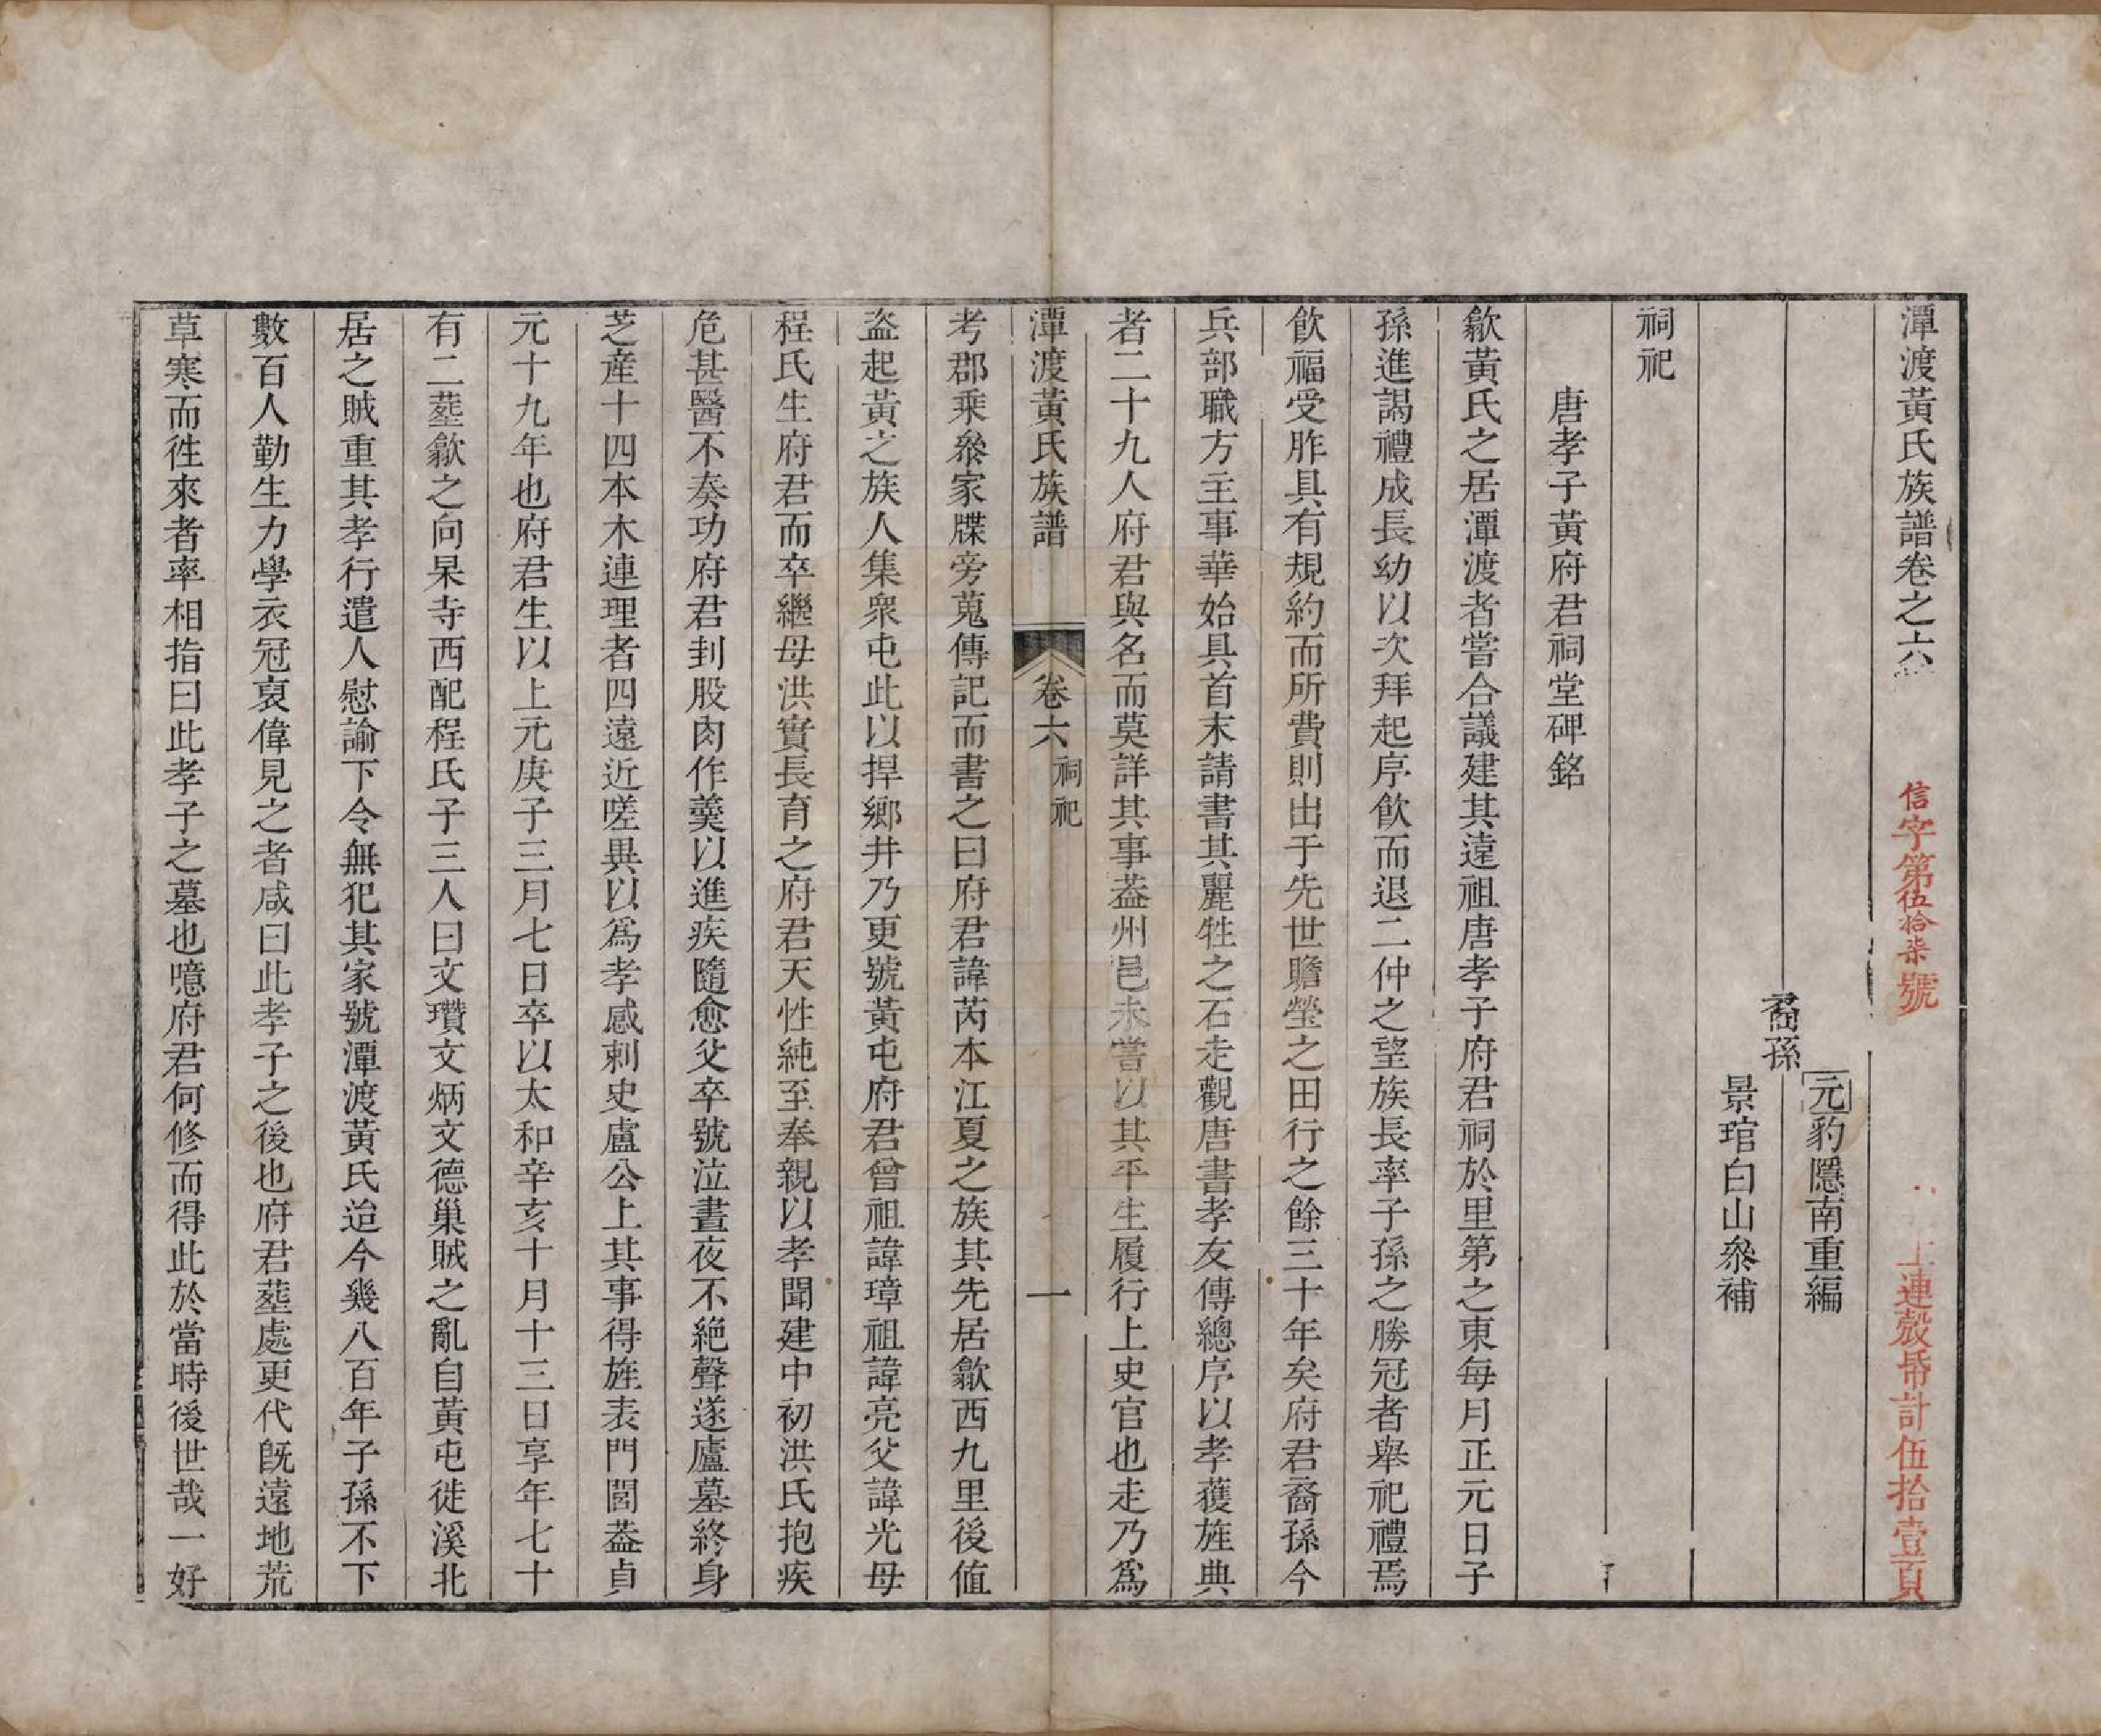 潭渡黃氏族譜卷之六
信字第伍拾柒號
上連殼帋計伍拾壹頁
裔孫
元豹隱南重編
景琯白山叅補
祠祀
唐孝子黃府君祠堂碑銘
歙黃氏之居潭渡者嘗合議建其遠祖唐孝子府君祠於里第之東每月正元日子
孫進謁禮成長幼以次拜起序飲而退二仲之望族長率子孫之勝冠者舉祀禮焉
飲福受胙具有規約而所費則出于先世贍塋之田行之餘三十年矣府君裔孫今
兵部職方主事華始具首末請書其麗牲之石走觀唐書孝友傳總序以孝獲旌典
者二十九人府君與名而莫詳其事葢州邑未嘗以其平生履行上史官也走乃爲
潭渡黃氏族譜
卷六
祠祀
一
考郡乘叅家牒旁蒐傳記而書之曰府君諱芮本江夏之族其先居歙西九里後值
盜起黃之族人集眾屯此以捍鄉井乃更號黃屯府君曾祖諱璋祖諱亮父諱光母
程氏生府君而卒繼母洪實長育之府君天性純至奉親以孝聞建中初洪氏抱疾
危甚醫不奏功府君刲股肉作羹以進疾隨愈父卒號泣晝夜不絕聲遂廬墓終身
芝産十四本木連理者四遠近嗟異以爲孝感刺史盧公上其事得旌表門閭葢貞
元十九年也府君生以上元庚子三月七日卒以太和辛亥十月十三日享年七十
有二葬歙之向杲寺西配程氏子三人曰文瓚文炳文德巢賊之亂自黃屯徙溪北
居之賊重其孝行遣人慰諭下令無犯其家號潭渡黃氏迨今幾八百年子孫不下
數百人勤生力學衣冠裒偉見之者咸曰此孝子之後也府君葬處更代既遠地荒
草寒而徃來者率相指曰此孝子之墓也噫府君何修而得此於當時後世哉一好